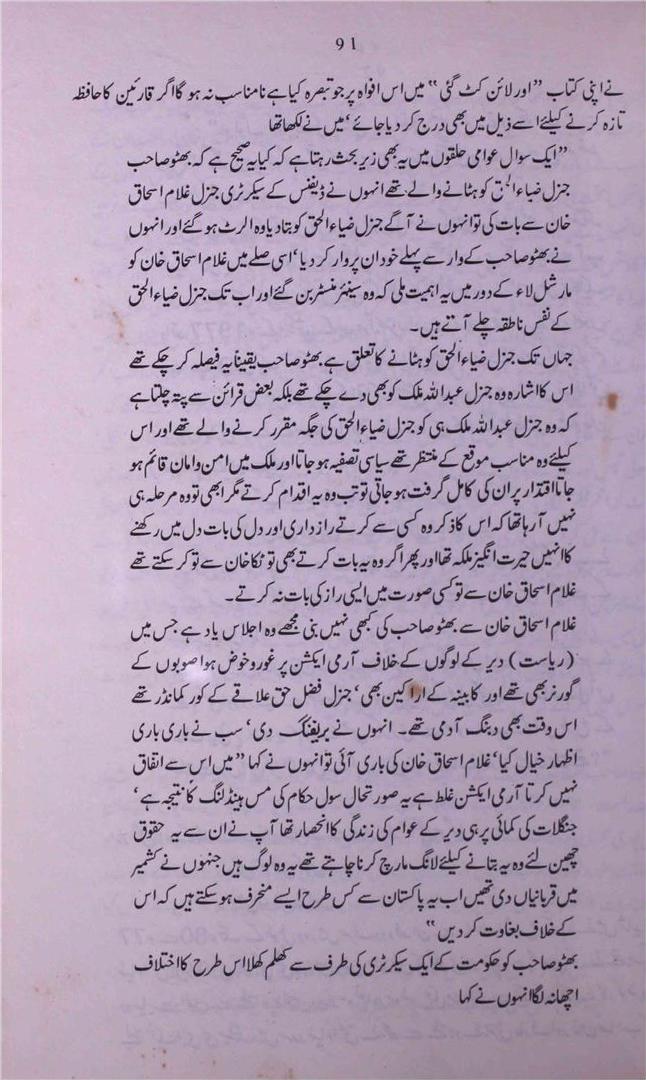 91
نے اپنی کتاب ”اور لائن کٹ گئی“ میں اس افواہ پر جو تبصرہ کیا ہے نامناسب نہ ہو گا اگر قارئین کا حافظہ
تازہ کرنے کیلئے اسے ذیل میں بھی درج کر دیا جائے ‘ میں نے لکھا تھا
”ایک سوال عوامی حلقوں میں یہ بھی زیر بحث رہتا ہے کہ کیا یہ صحیح ہے کہ بھٹو صاحب
جنرل ضیاء الحق کو ہٹانے والے تھے انہوں نے ڈیفنس کے سیکرٹری جنرل غلام اسحاق
خان سے بات کی تو انہوں نے آگے جنرل ضیاء الحق کو بتا دیا وہ الرٹ ہو گئے اور انہوں
نے بھٹو صاحب کے وار سے پہلے خود ان پر وار کر دیا ‘ اسی صلے میں غلام اسحاق خان کو
مارشل لاء کے دور میں یہ اہمیت ملی کہ وہ سینئر منسٹر بن گئے اور اب تک جنرل ضیاء الحق
کے نفس ناطقہ چلے آتے ہیں۔
جہاں تک جنرل ضیاء الحق کو ہٹانے کا تعلق ہے بھٹو صاحب یقیناً یہ فیصلہ کر چکے تھے
اس کا اشارہ وہ جنرل عبداللہ ملک کو بھی دے چکے تھے بلکہ بعض قرائن سے پتہ چلتا ہے
کہ وہ جنرل عبداللہ ملک ہی کو جنرل ضیاء الحق کی جگہ مقرر کرنے والے تھے اور اس
کیلئے وہ مناسب موقع کے منتظر تھے سیاسی تصفیہ ہو جاتا اور ملک میں امن و امان قائم ہو
جاتا اقتدار پر ان کی کامل گرفت ہو جاتی تو تب وہ یہ اقدام کرتے مگر ابھی تو وہ مرحلہ ہی
نہیں آ رہا تھا کہ اس کا ذکر وہ کسی سے کرتے رازداری اور دل کی بات دل میں رکھنے
کا انہیں حیرت انگیز ملکہ تھا اور پھر اگر وہ یہ بات کرتے بھی تو ٹکا خان سے تو کر سکتے تھے
غلام اسحاق خان سے تو کسی صورت میں ایسی راز کی بات نہ کرتے۔
غلام اسحاق خان سے بھٹو صاحب کی کبھی نہیں بنی مجھے وہ اجلاس یاد ہے جس میں
(ریاست) دیر کے لوگوں کے خلاف آرمی ایکشن پر غور و خوض ہوا صوبوں کے
گورنر بھی تھے اور کابینہ کے اراکین بھی ‘ جنرل فضل حق علاقے کے کور کمانڈر تھے
اس وقت بھی دبنگ آدمی تھے۔ انہوں نے بریفنگ دی ‘ سب نے باری باری
اظہار خیال کیا ‘ غلام اسحاق خان کی باری آئی تو انہوں نے کہا ”میں اس سے اتفاق
نہیں کرتا آرمی ایکشن غلط ہے یہ صورتحال سول حکام کی مس ہینڈلنگ کا نتیجہ ہے ‘
جنگلات کی کمائی پر ہی دیر کے عوام کی زندگی کا انحصار تھا آپ نے ان سے یہ حقوق
چھین لئے وہ یہ بتانے کیلئے لانگ مارچ کرنا چاہتے تھے یہ وہ لوگ ہیں جنہوں نے کشمیر
میں قربانیاں دی تھیں اب یہ پاکستان سے کس طرح ایسے منحرف ہو سکتے ہیں کہ اس
کے خلاف بغاوت کر دیں“
بھٹو صاحب کو حکومت کے ایک سیکرٹری کی طرف سے کھلم کھلا اس طرح کا اختلاف
اچھا نہ لگا انہوں نے کہا